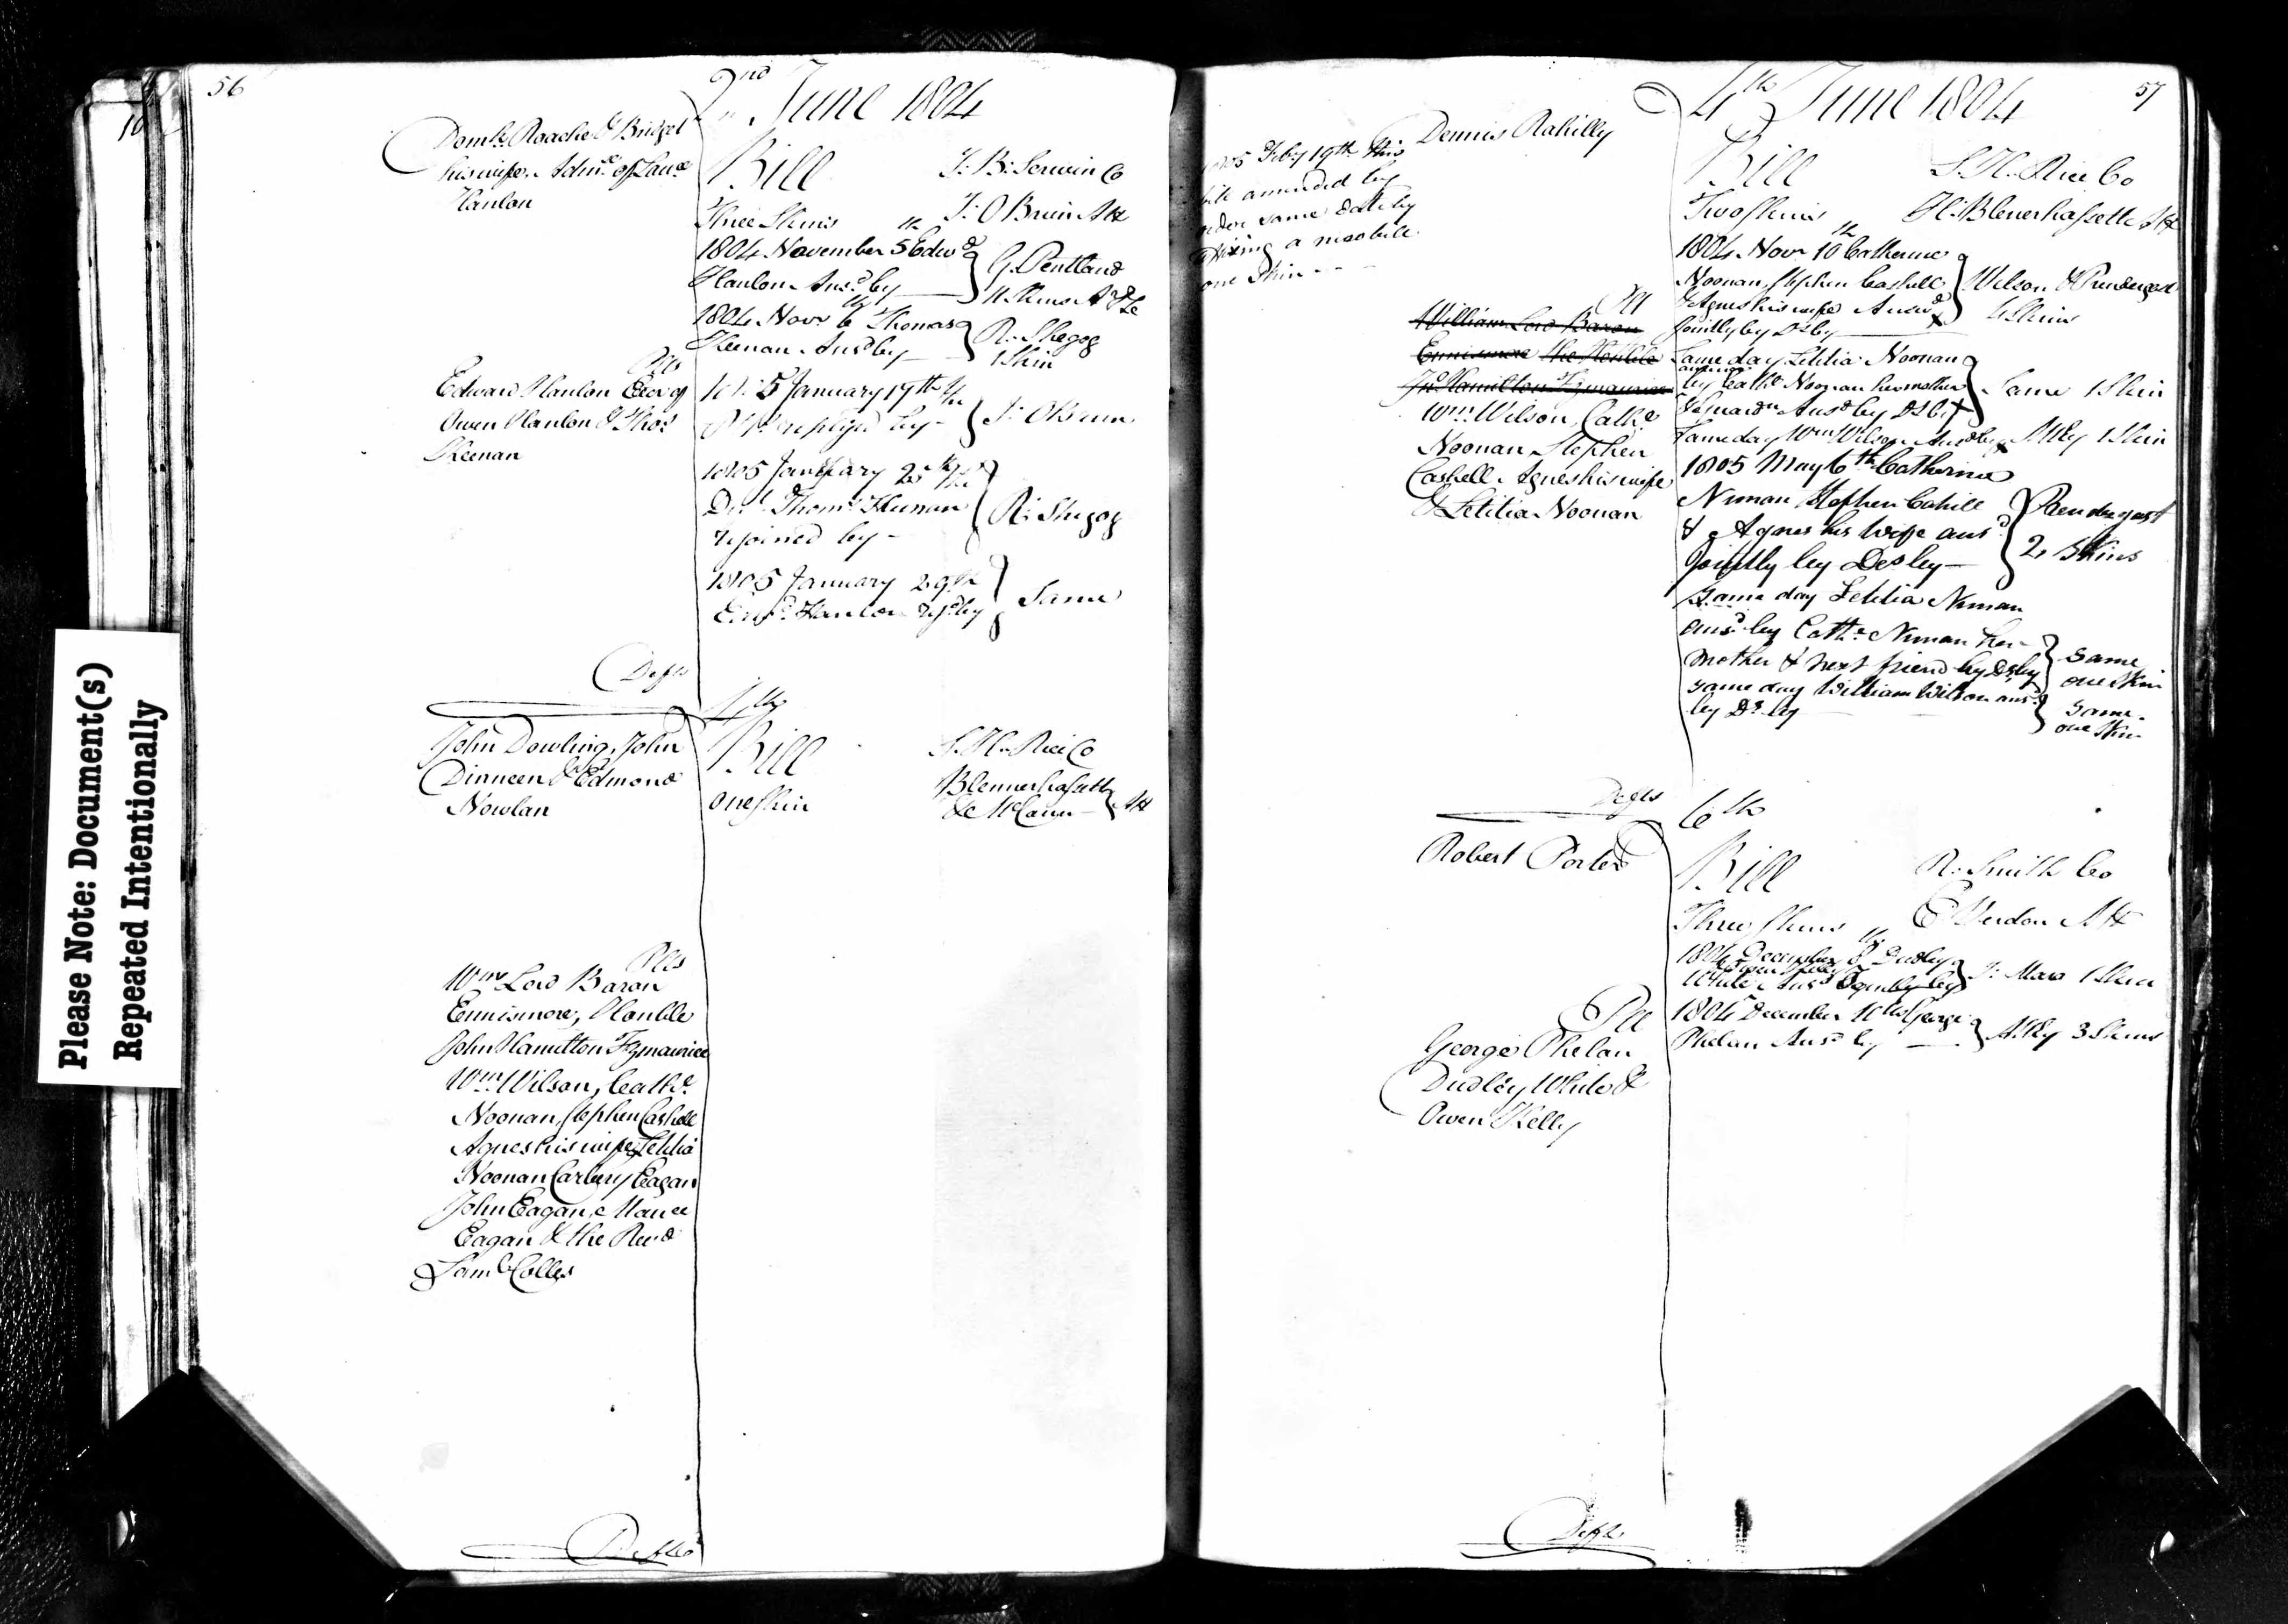 Please Note: Document(s)
Repeated Intentionally
56
2nd June 1804
Domk. Roache & Bridget
his wife, Admx. of Lauce
Hanlon
Plts
Edward Hanlon Exor of
Owen Hanlon & Thos
Keenan
Defts
Bill
T: B: Scriven Co
Three Skins
T: OBrien Att
1804 November 5th Edwd
Hanlon Ansd by
G. Pentland
11 Skins
1804 Novr 6th Thomas
Keenan Ansd by
R. Shegog
1 Skin
1805 January 19th the
replyd by
T: OBrien
1805 January 25th the
Thoms Keenan
rejoined by
R: Shegog
1805 January 29th
Edwd. Hanlon by
Same
4th
John Dowling, John
Dinneen & Edmond
Nowlan
Plts
Bill
S. H. Rice Co
one Skin
Blennerhassett
& McCann
Att
Wm Lord Baron
Ennismore, Honble
John Hamilton Fzmaurice
Wm Wilson, Cathe
Noonan, Stephen Cashell
Agnes his wife, Letitia
Noonan Carbery Eagan
John Eagan,
Eagan & the Revd
Saml Colles
Defts
57
4th June 1804
1805 Feby 19th this
bill amended by
order same date by
a new bill
one Skin
Dennis Rahilly
Plt
William Lord Baron
Ennismore the Honble
Jno Hamilton Fzmaurice
Wm Wilson, Cathe
Noonan Stephen
Cashell Agnes his wife
& Letitia Noonan
Defts
Bill
S. H. Rice Co
Two Skins
H: Blenerhassett Att
1804 Novr 10th Catherine
Noonan, Stephen Cashell
& Agnes his wife Answd
jointly by Ds by
Wilson & Prendergast
4 Skins
Same day Letitia Noonan
by Cathe Noonan her mother
& Guardn Ansd by Ds by
Same 1 Skin
Same day Wm Wilson Ansd by
Atty 1 Skin
1805 May 6th Catherine
Nunan Stephen Cahill
& Agnes his Wife ansd
jointly by Des by
Prendergast
2 Skins
Same day Letitia Nunan
ansd by Cathe Nunan her
mother & next friend by Ds by
Same
one Skin
same day William Wilson ansd
by Ds by
Same
one Skin
6th
Robert Porter
Plt
Bill
R. Smith Co
Three Skins
Verdon Att
1804 December 8th Dudley
White & Owen Kelly Ansd by
1 Skin
1804 December 10th George
Phelan Ansd by
Atty 3 Skins
George Phelan
Dudley White &
Owen Kelly
Defts